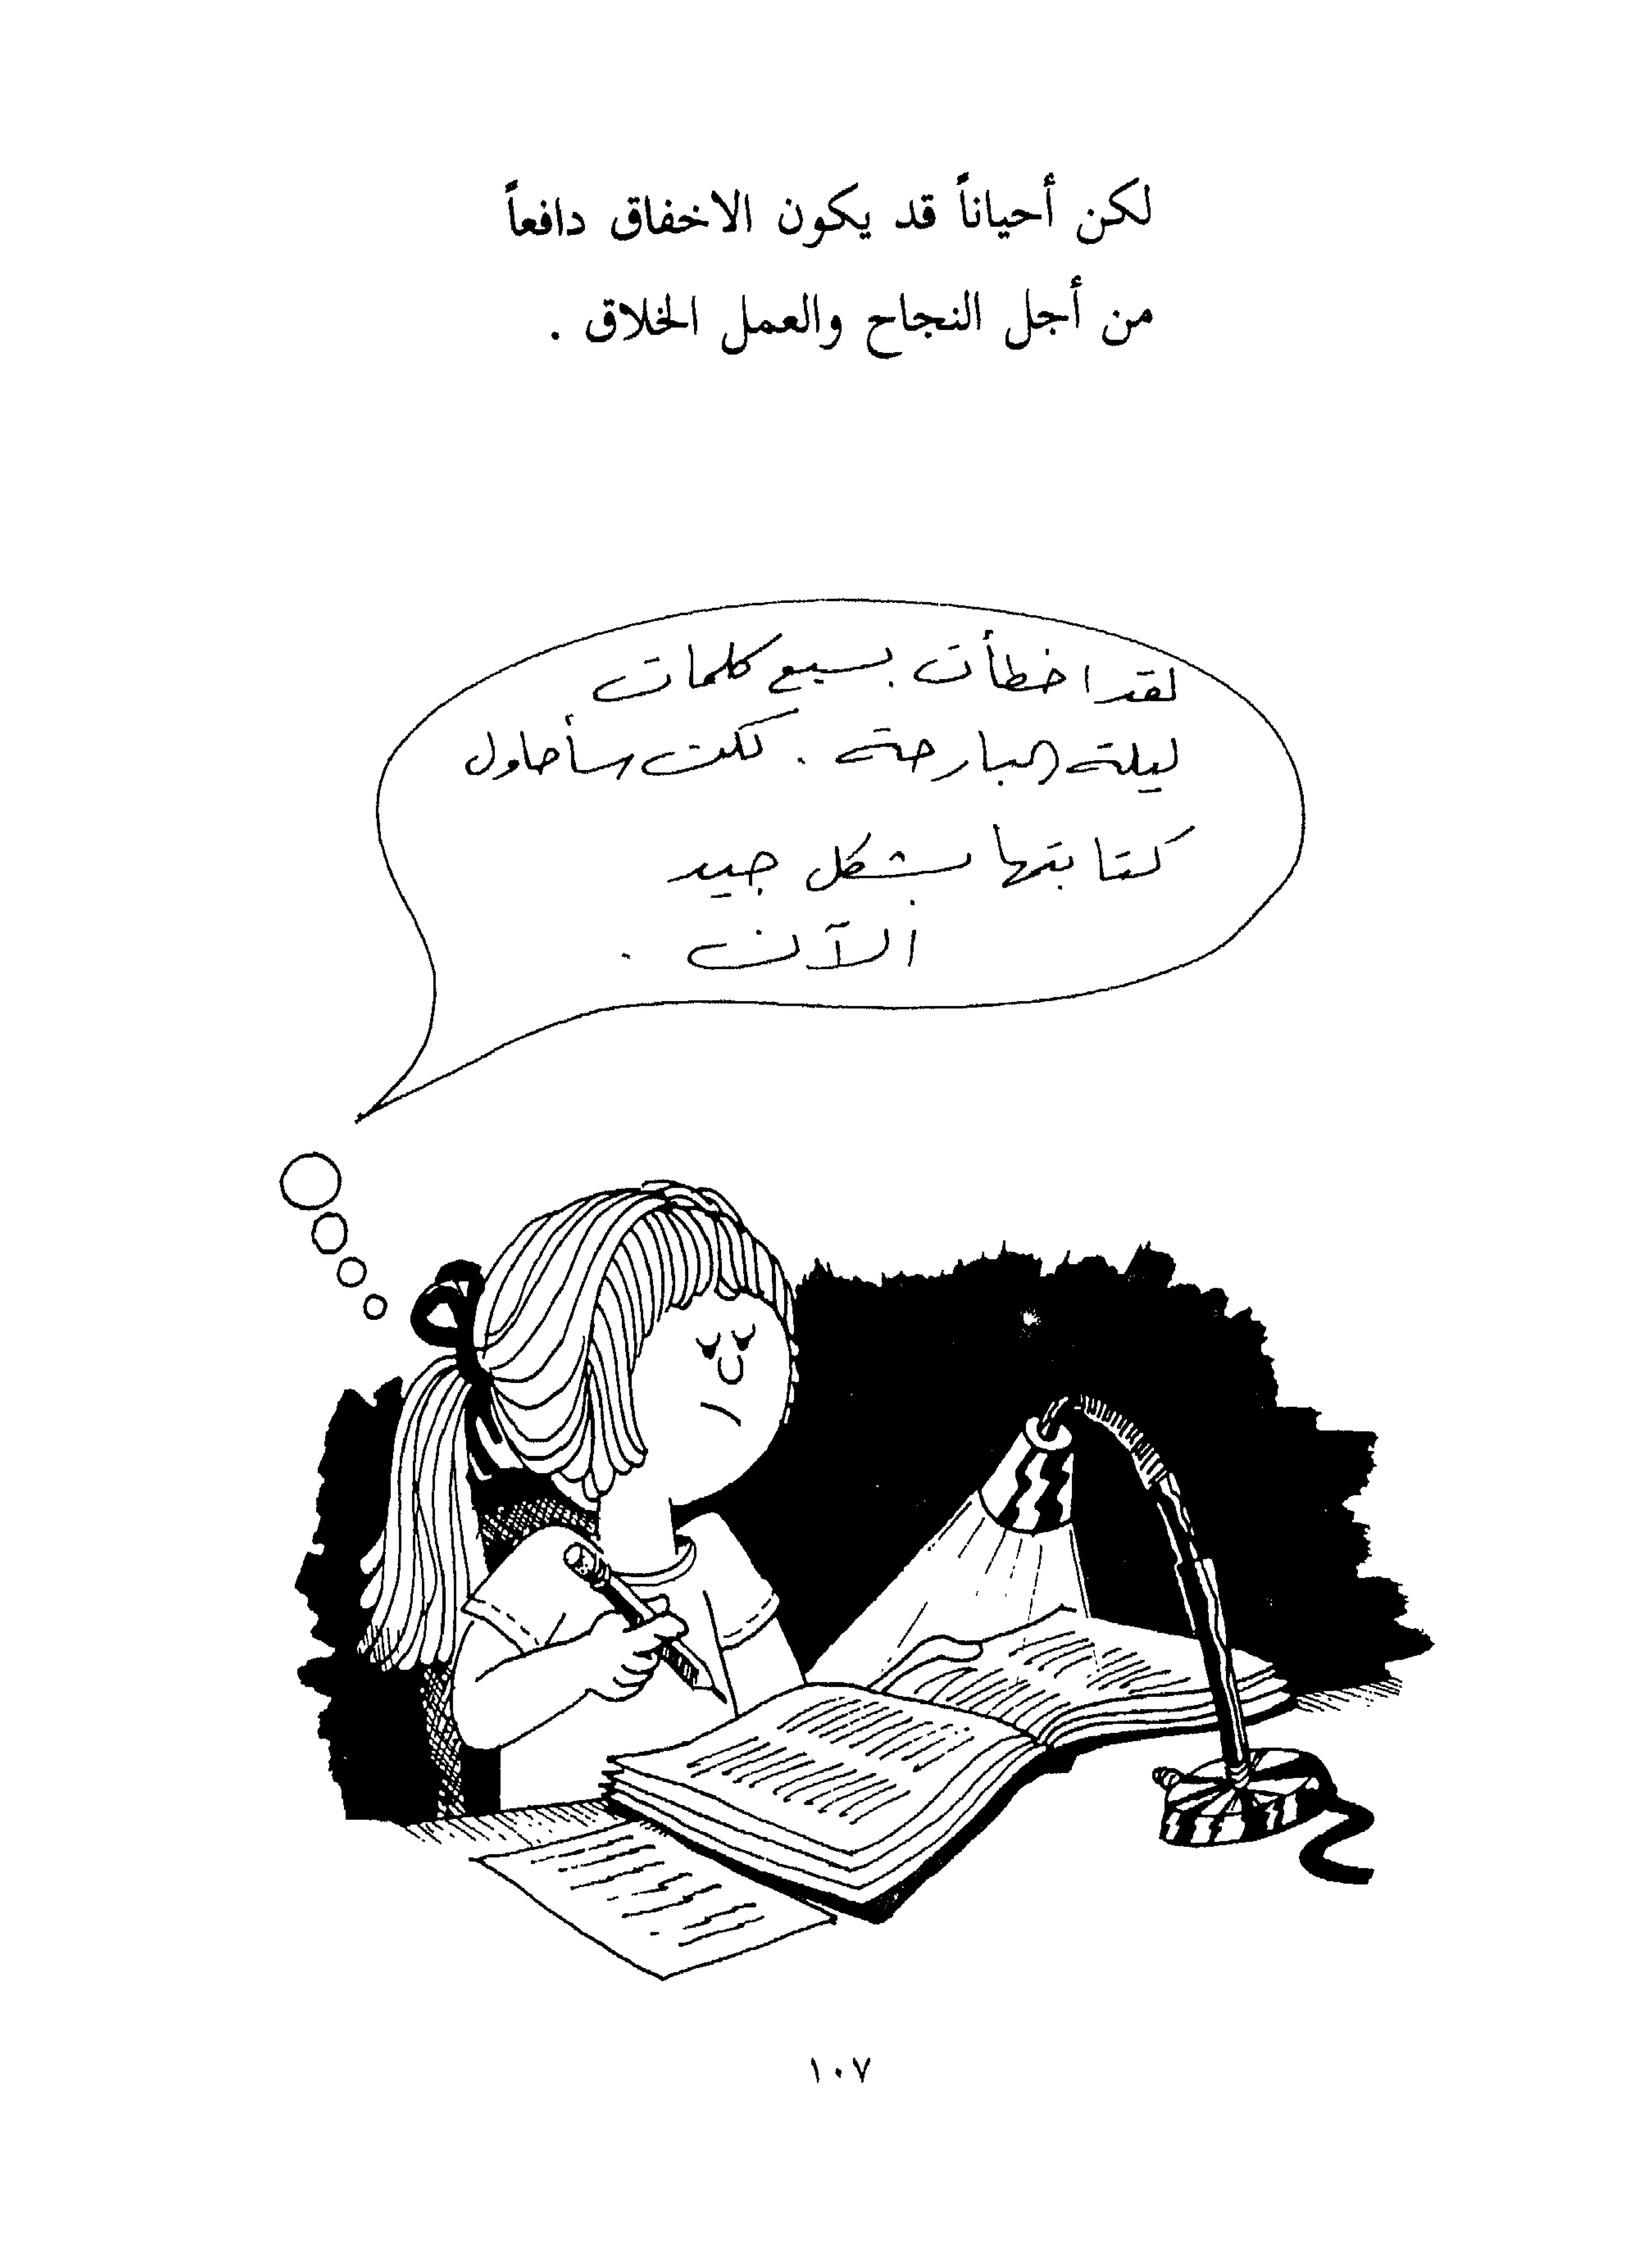 لكن أحياناً قد يكون الاخفاق دافعاً
من أجل النجاح والعمل الخلاق .
لقد اخطأت بسبع كلمات
ليلة البارحة . لكن سأحاول
كتابتها بشكل جيد
الآن .
١٠٧